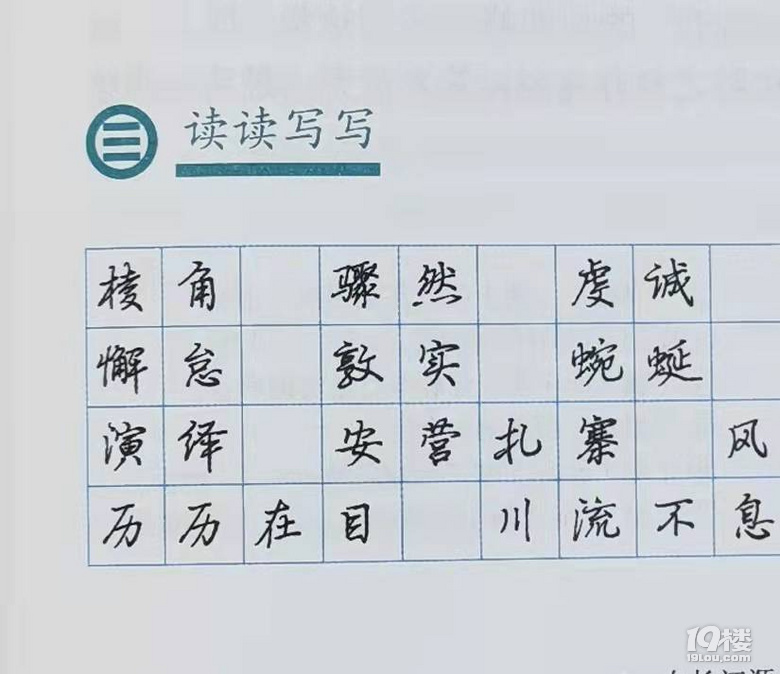 读读写写
棱角 骤然 虔诚
懈怠 敦实 蜿蜒
演绎 安营扎寨 风
历历在目 川流不息
19楼
19lou.com